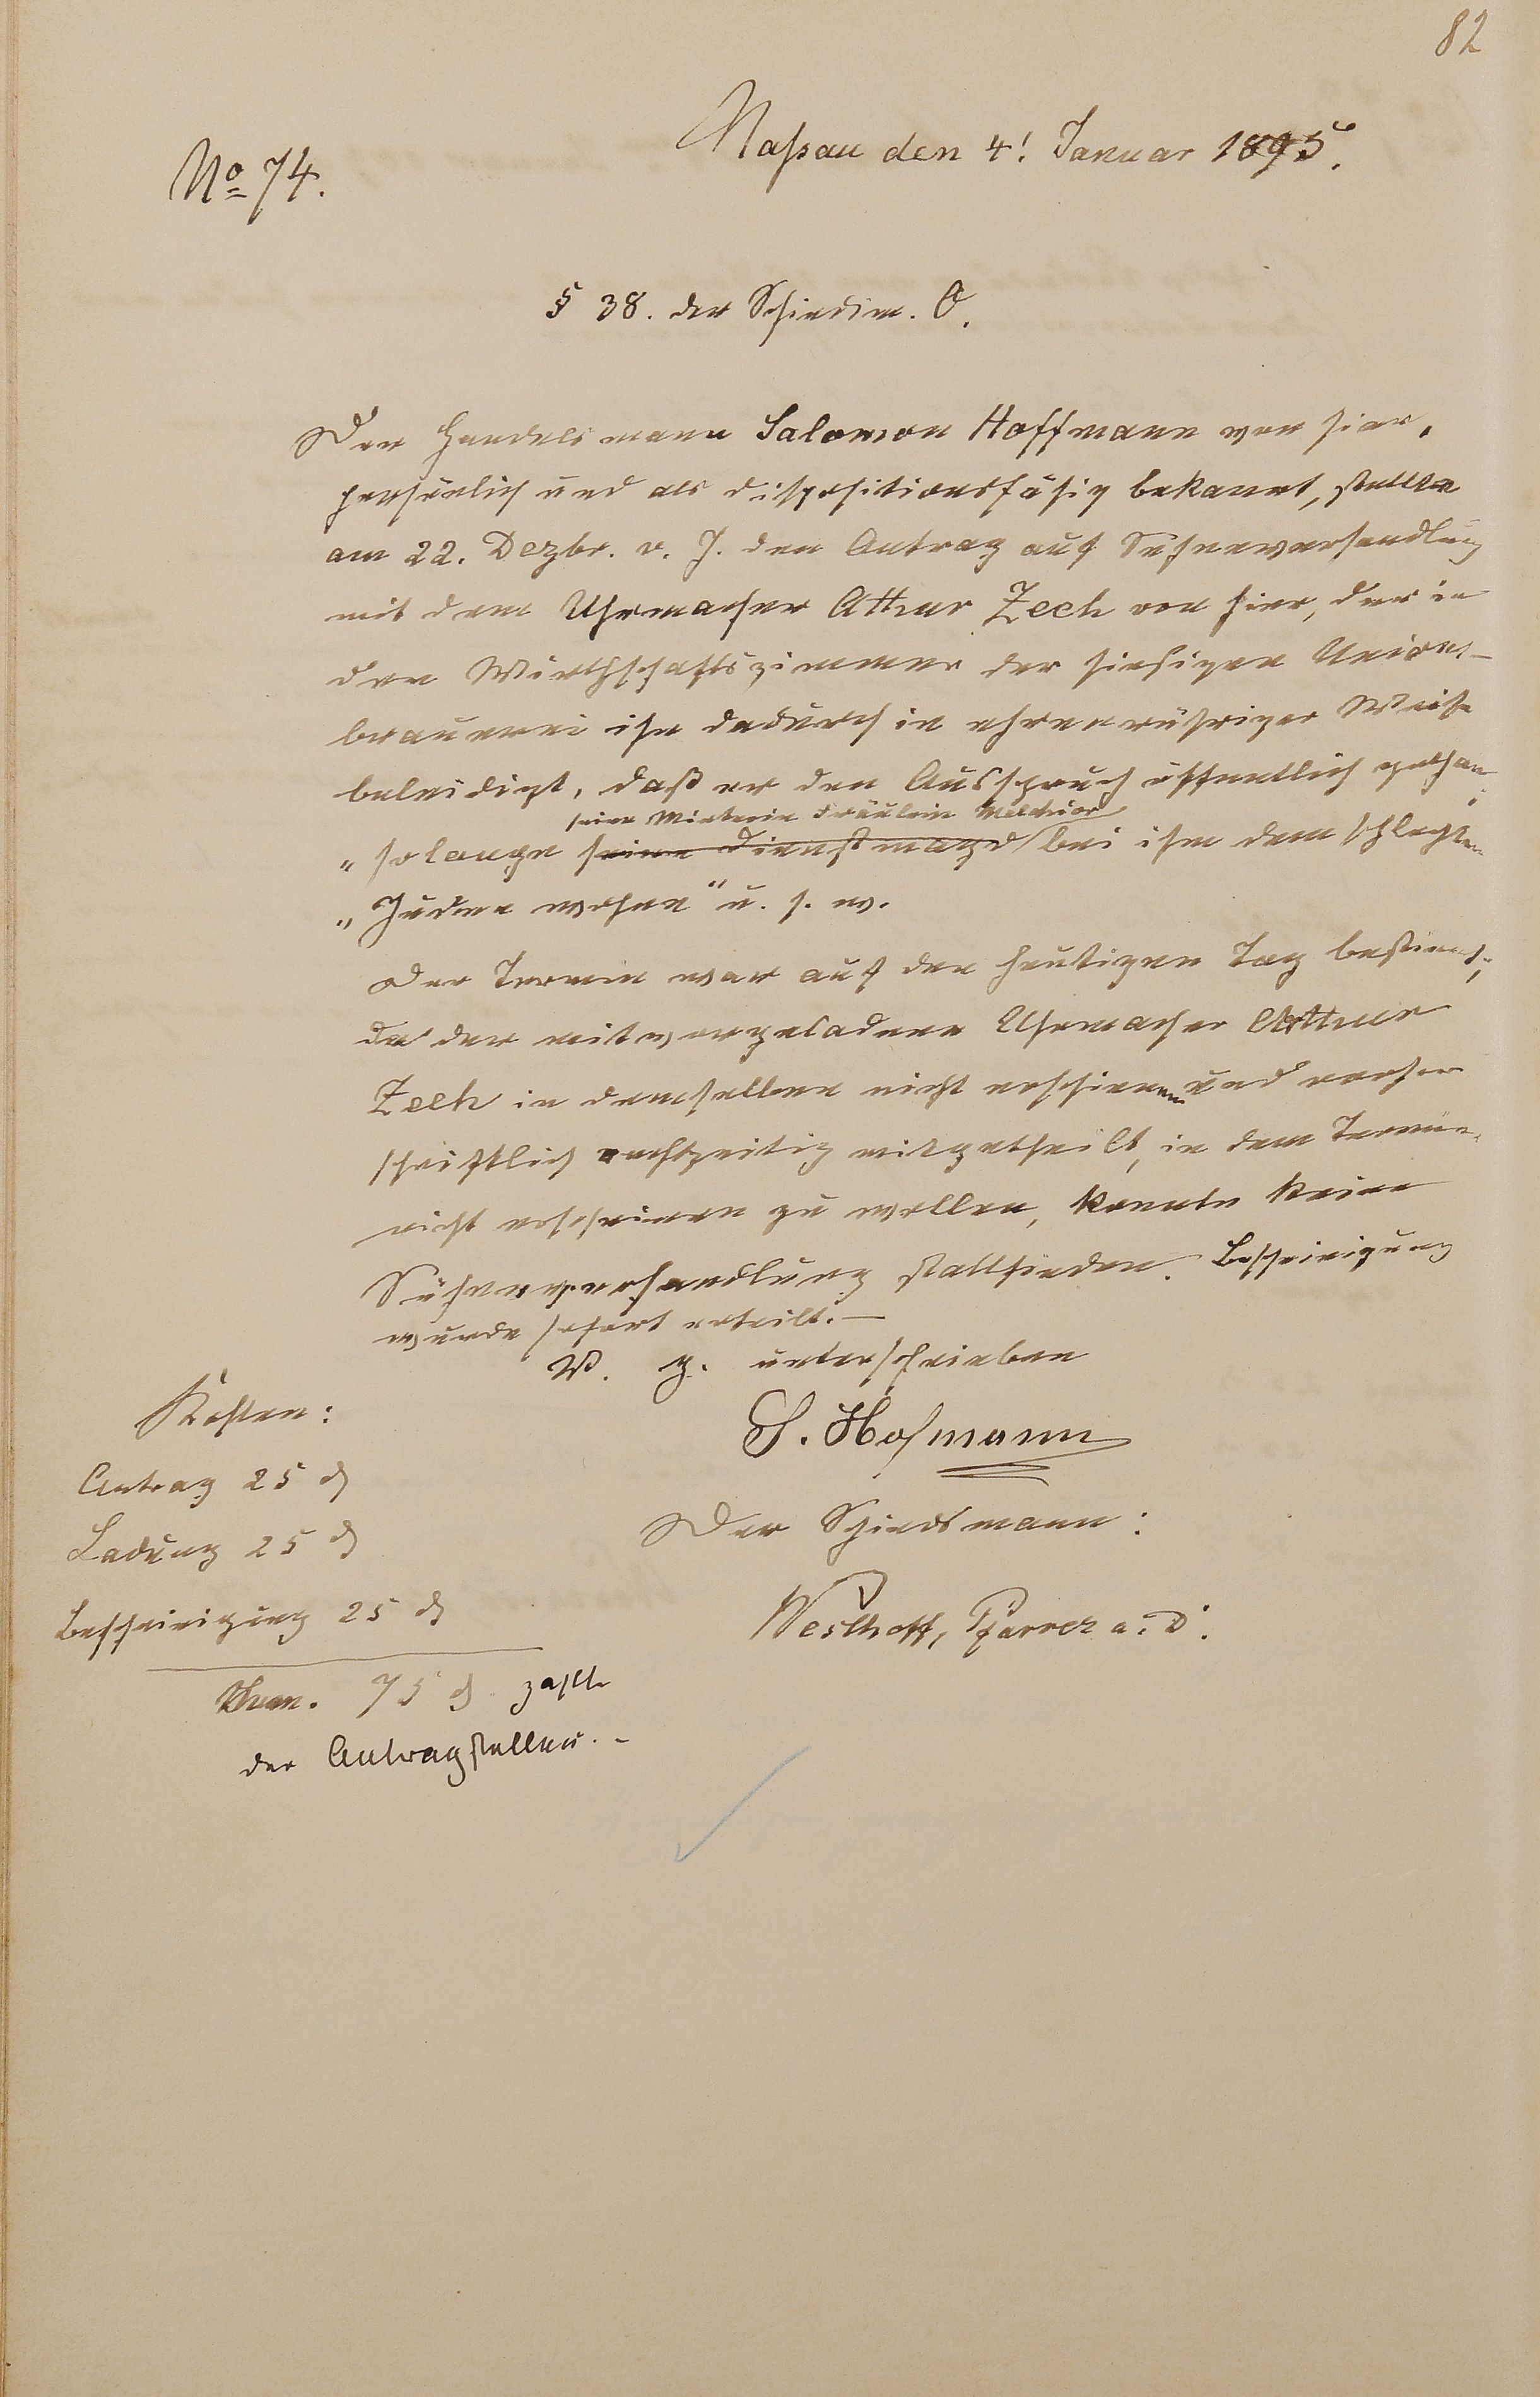 82
Naßau den 4! Januar 1895.
No 74.
§ 38. der Schiedsm. O.
Der Handelsmann Salomon Hoffmann von hier,
persönlich und als dispositionsfähig bekannt, stellte
am 22. Dezbr. v. J. den Antrag auf Sühneverhandlung
mit dem Uhrmacher Atthur Zech von hier, der in
den Wirthschaftszimmer der hiesigen Unions-
brauerei ihn dadurch in ehrenrühriger Weise
beleidigt, daß er den Ausspruch öffentlich gethan,
seine Mieterin Fräulein Melchior
„solange seine Dienstmagd bei ihm dem schlechten
„Juden wohne" u. s. w.
Der Termin war auf den heutigen Tag bestimmt;
da der mitvorgeladene Uhrmacher Artthur
Zech in demselben nicht erschienen und vorher
schriftlich rechtzeitig mitgetheilt, in dem Termine
nicht erscheinen zu wollen, konnte keine
Sühneverhandlung stattfinden. Bescheinigung
wurde sofort erteilt.—
V. g. unterschrieben
S. Hofmann
Der Schiedsmann:
Westhoff, Pfarrer a. D.
Kosten:
Antrag 25 ₰
Ladung 25 ₰
Bescheinigung 25 ₰
75 ₰ zahlt
der Antragsteller.-